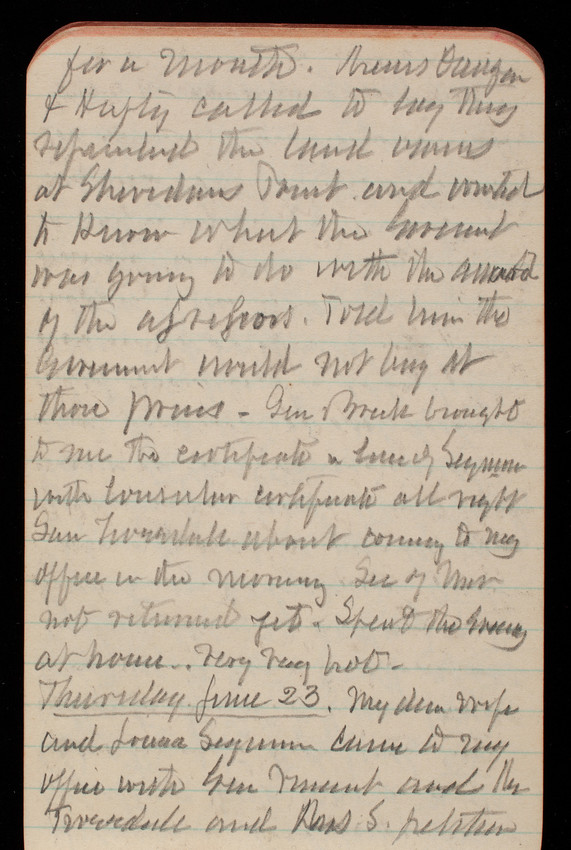 for a month.
& Hefty called to say they
represented the land owners
at Sheridans Point and wanted
to know what the Goverment
was going to do with the award
of the assessors. Told him the
Goverment would not buy at
those prices - Gen Breck brought
to me the certificate Seymour
with Consular certificate all right
Gen Truesdale about coming to my
office in the morning Sec of War
not returned yet. Spent the Evening
at home.. Very very hot -
Thursday June 23. My dear wife
and Seymour came to my
office with Gen Vincent and Mr
Truesdale and Mrs S. petition